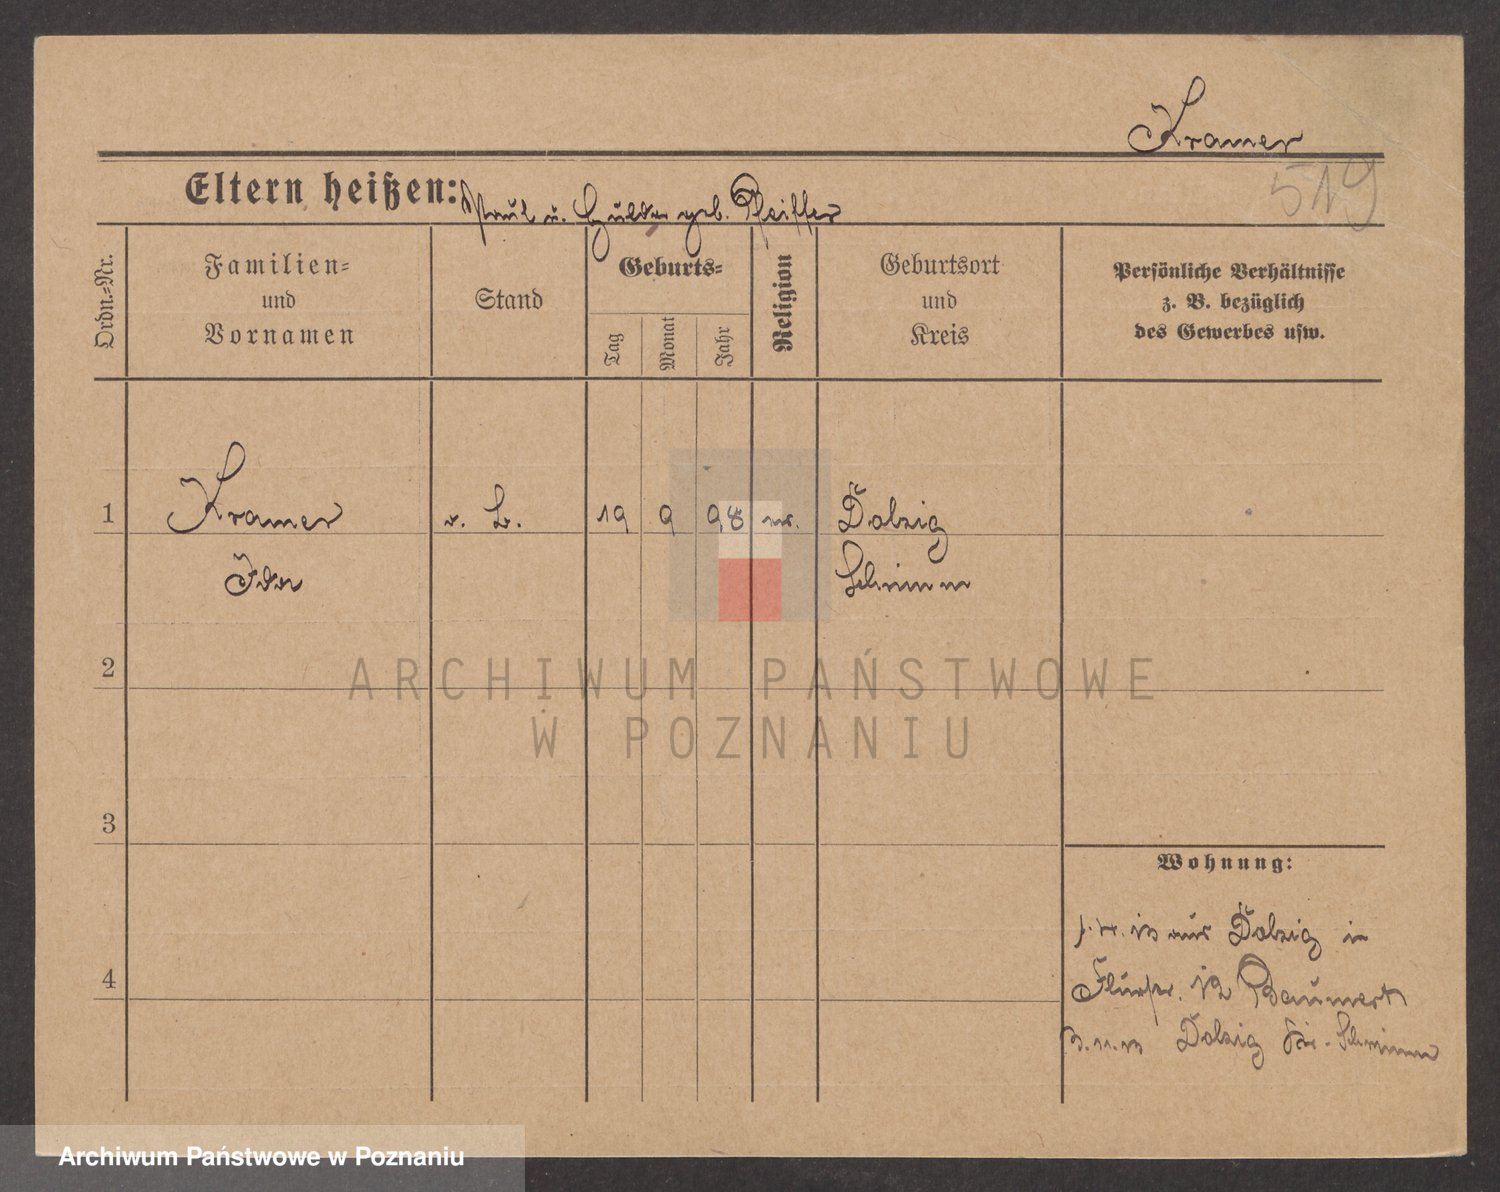 Kramer
519
Eltern heißen: Paul u. Hulda geb. Pfeiffer
Ordn.=Nr.
Familien=
und
Vornamen
Stand
Geburts=
Tag
Monat
Jahr
Religion
Geburtsort
und
Kreis
Persönliche Verhältnisse
z. B. bezüglich
des Gewerbes usw.
1 Kramer 19 9 98 Dolzig
Ida Schrimm
2
ARCHIWUM PAŃSTWOWE
W POZNANIU
3
Wohnung:
13 aus Dolzig in
4
Flurstr. 12 Baumert
Dolzig Kr. Schrimm
Archiwum Państwowe w Poznaniu